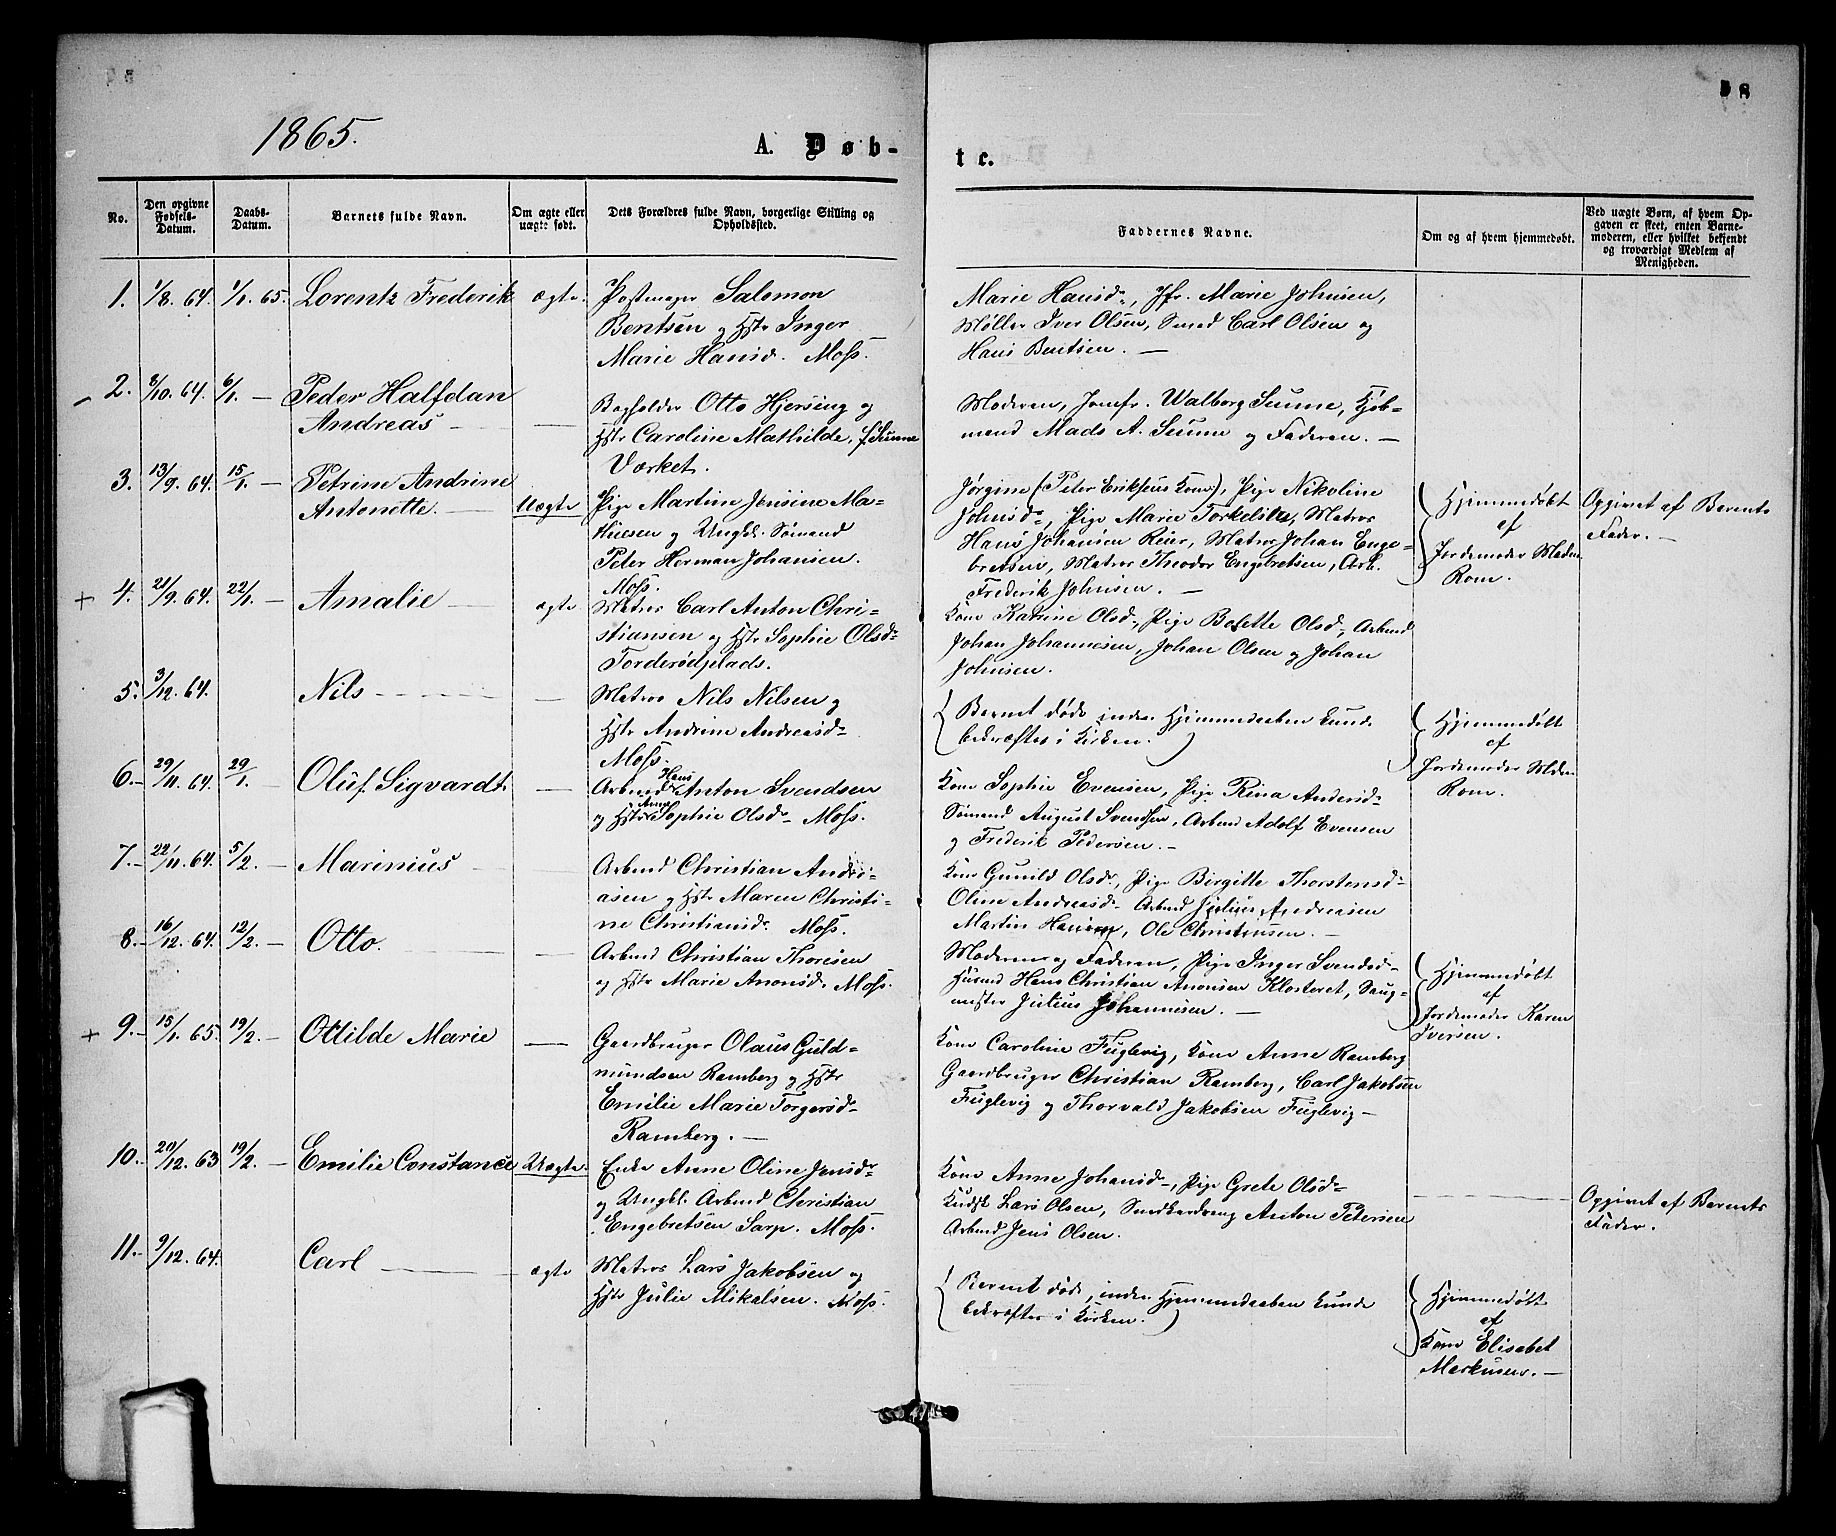 1865.
A. Døb-
te.
8
No.
Den opgivne Fødsels-Datum.
Daabs-Datum.
Barnets fulde Navn.
Om ægte eller uægte født.
Dets Forældres fulde Navn, borgerlige Stilling og Opholdssted.
Faddernes Navne.
Om og af hvem hjemmedøbt.
Ved uægte Børn, af hvem Opgaven er skeet, enten Barnemoderen, eller hvilket bekjendt og troværdigt Medlem af Menigheden.
1. 1/8. 64. 1/1. 65. Lorentz Frederik ægte. Salomon
Bentsen og Hstr Inger
Marie Hansd. Moss.
Marie Hansd., Jfr. Marie Johnsen,
Møller Iver Olsen, Smed Carl Olsen og
Hans Bentsen. —
2. 8/10. 64. 6/1. — Peder Halfdan
Andreas —
Bogholder Otto Hjersing og
Hstr Caroline Mathilde, f.
Værket.
Moderen, Jomfr. Walborg, Kjøb-
mand Mads A. og Faderen. —
3. 13/9. 64. 15/1. — Petrine Andrine
Antonette. — Uægte
Pige Martine Jensine Ma-
thiesen og Ungk. Sømand
Peter Herman Johansen.
Moss.
Jørgine (Peter Eriksens Kone), Pige Nikoline
Johnsd., Pige Marie, Matros
Hans Johansen Reier, Matros Johan Enge-
bretsen, Matros Theodor Engebretsen, Arb.
Frederik Johnsen. —
Hjemmedøbt
af
Jordemoder Madm
Rom.
Opgivet af Barnets
Fader. —
+ 4. 21/9. 64. 22/1. — Amalie — ægte
Matros Carl Anton Chri-
stiansen og Hstr Sophie Olsd.
Torderødplads.
Kone Katrine Olsd., Pige Bolette Olsd., Arbmd
Johan Johannesen, Johan Olsen og Johan
Johnsen.
5. 3/12. 64. Nils —
Matros Nils Nilsen og
Hstr Andrine Andreasd.
Moss.
(Barnet døde, inden Hjemmedaaben kunde
bekræftes i Kirken.)
Hjemmedøbt
af
Jordemoder Mdm
Rom.
6. — 29/11. 64. 29/1. — Oluf Sigvardt. —
Arbmd Hans Anton Svendsen
og Hstr Anna Sophie Olsd. Moss.
Kone Sophie Evensen, Pige Rina Andersd.
Sømand August Svendsen, Arbmd Adolf Evensen
og Frederik Pedersen. —
7. — 22/11. 64. 5/2. — Marinius —
Arbmd Christian Andre-
asen og Hstr Maren Christi-
ne Christiansd. Moss.
Kone Gunild Olsd., Pige Birgitte Thorstensd.
Oline Andreasd. Arbmd Julius Andreasen
Martin Hansen, Ole Christensen. —
8. — 16/12. 64. 12/2. — Otto. —
Arbmd Christian Thoresen
og Hstr Marie Anonsd. Moss.
Moderen og Faderen, Pige Inger Svendsd.
Husmd Hans Christian Anonsen Klosteret, Saug-
mester Julius Johannesen. —
Hjemmedøbt
af
Jordemoder Karen
Iversen.
+ 9. — 15/1. 65. 19/2. — Ottilde Marie —
Gaardbruger Olaus Guld-
mundsen Ramberg og Hstr
Emilie Marie Torgersd.
Ramberg. —
Kone Caroline Fuglevig, Kone Anne Ramberg
Gaardbruger Christian Ramberg, Carl Jakobsen
Fuglevig og Thorvald Jakobsen Fuglevig —
10. — 20/12. 63 19/2. — Emilie Constance Uægte.
Enke Anne Oline Jensd.
og Ungk. Arbmd Christian
Engebretsen Sarp. Moss.
Kone Anne Johansd., Pige Grete Olsd.
Kudsk Lars Olsen, Anton Petersen
Arbmd Jens Olsen.
Opgivet af Barnets
Fader.
11. — 9/12. 64. Carl — ægte
Matros Lars Jakobsen og
Hstr Julie Mikalsen. Moss.
(Barnet døde, inden Hjemmedaaben kunde
bekræftes i Kirken.)
Hjemmedøbt
af
Kone Elisabet
Markusen. —